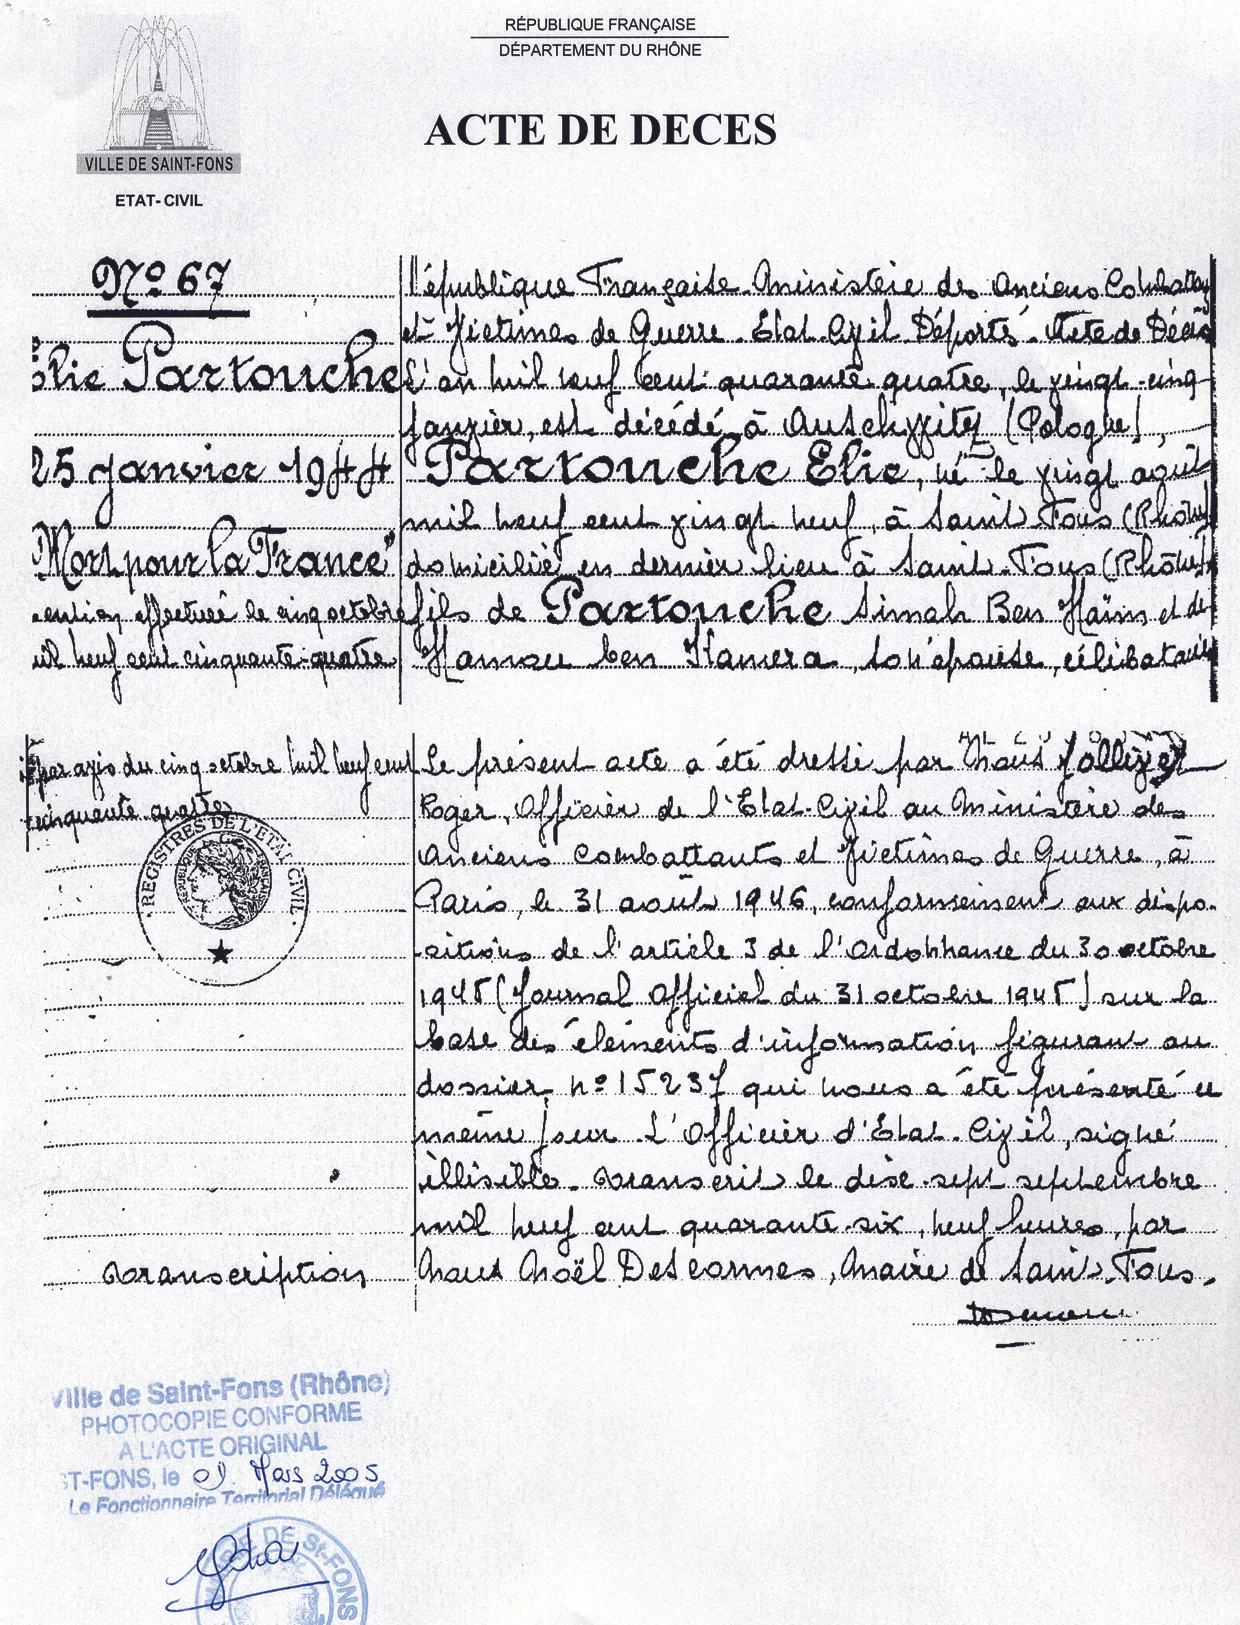 RÉPUBLIQUE FRANÇAISE
DÉPARTEMENT DU RHÔNE
ACTE DE DECES
VILLE DE SAINT-FONS
ETAT-CIVIL
No 67
Elie Partouche
25 janvier 1944
"Mort pour la France"
mention effectuée le cinq octobre
mil neuf cent cinquante-quatre
par avis du cinq octobre mil neuf cent
cinquante quatre
REGISTRES DE L'ETAT CIVIL
Transcription
République Française. Ministère des Anciens Combattants
et Victimes de Guerre. Etat-Civil Déportés. Acte de Décès
L'an mil neuf cent quarante quatre, le vingt-cinq
janvier, est décédé à Auschwitz (Pologne),
Partouche Elie, né le vingt août
mil neuf cent vingt neuf, à Saint-Fons (Rhône)
domicilié en dernier lieu à Saint-Fons (Rhône)
fils de Partouche Simah Ben Haïm et de
Hamou ben Kamera, son épouse, célibataire
Le présent acte a été dressé par Nous
Roger, Officier de l'Etat-Civil au Ministère des
Anciens Combattants et Victimes de Guerre, à
Paris, le 31 août 1946, conformément aux dispo-
sitions de l'article 3 de l'Ordonnance du 30 octobre
1945 (Journal Officiel du 31 octobre 1945) sur la
base des éléments d'information figurant au
dossier no 15237 qui nous a été présenté ce
même jour. L'Officier d'Etat-Civil, signé
illisible. Transcrit le dix-sept septembre
mil neuf cent quarante-six, neuf heures, par
Nous Noël Descormes, Maire de Saint-Fons.
Ville de Saint-Fons (Rhône)
PHOTOCOPIE CONFORME
A L'ACTE ORIGINAL
ST-FONS, le Mars 2005
Le Fonctionnaire Territorial Délégué
DE St-FONS